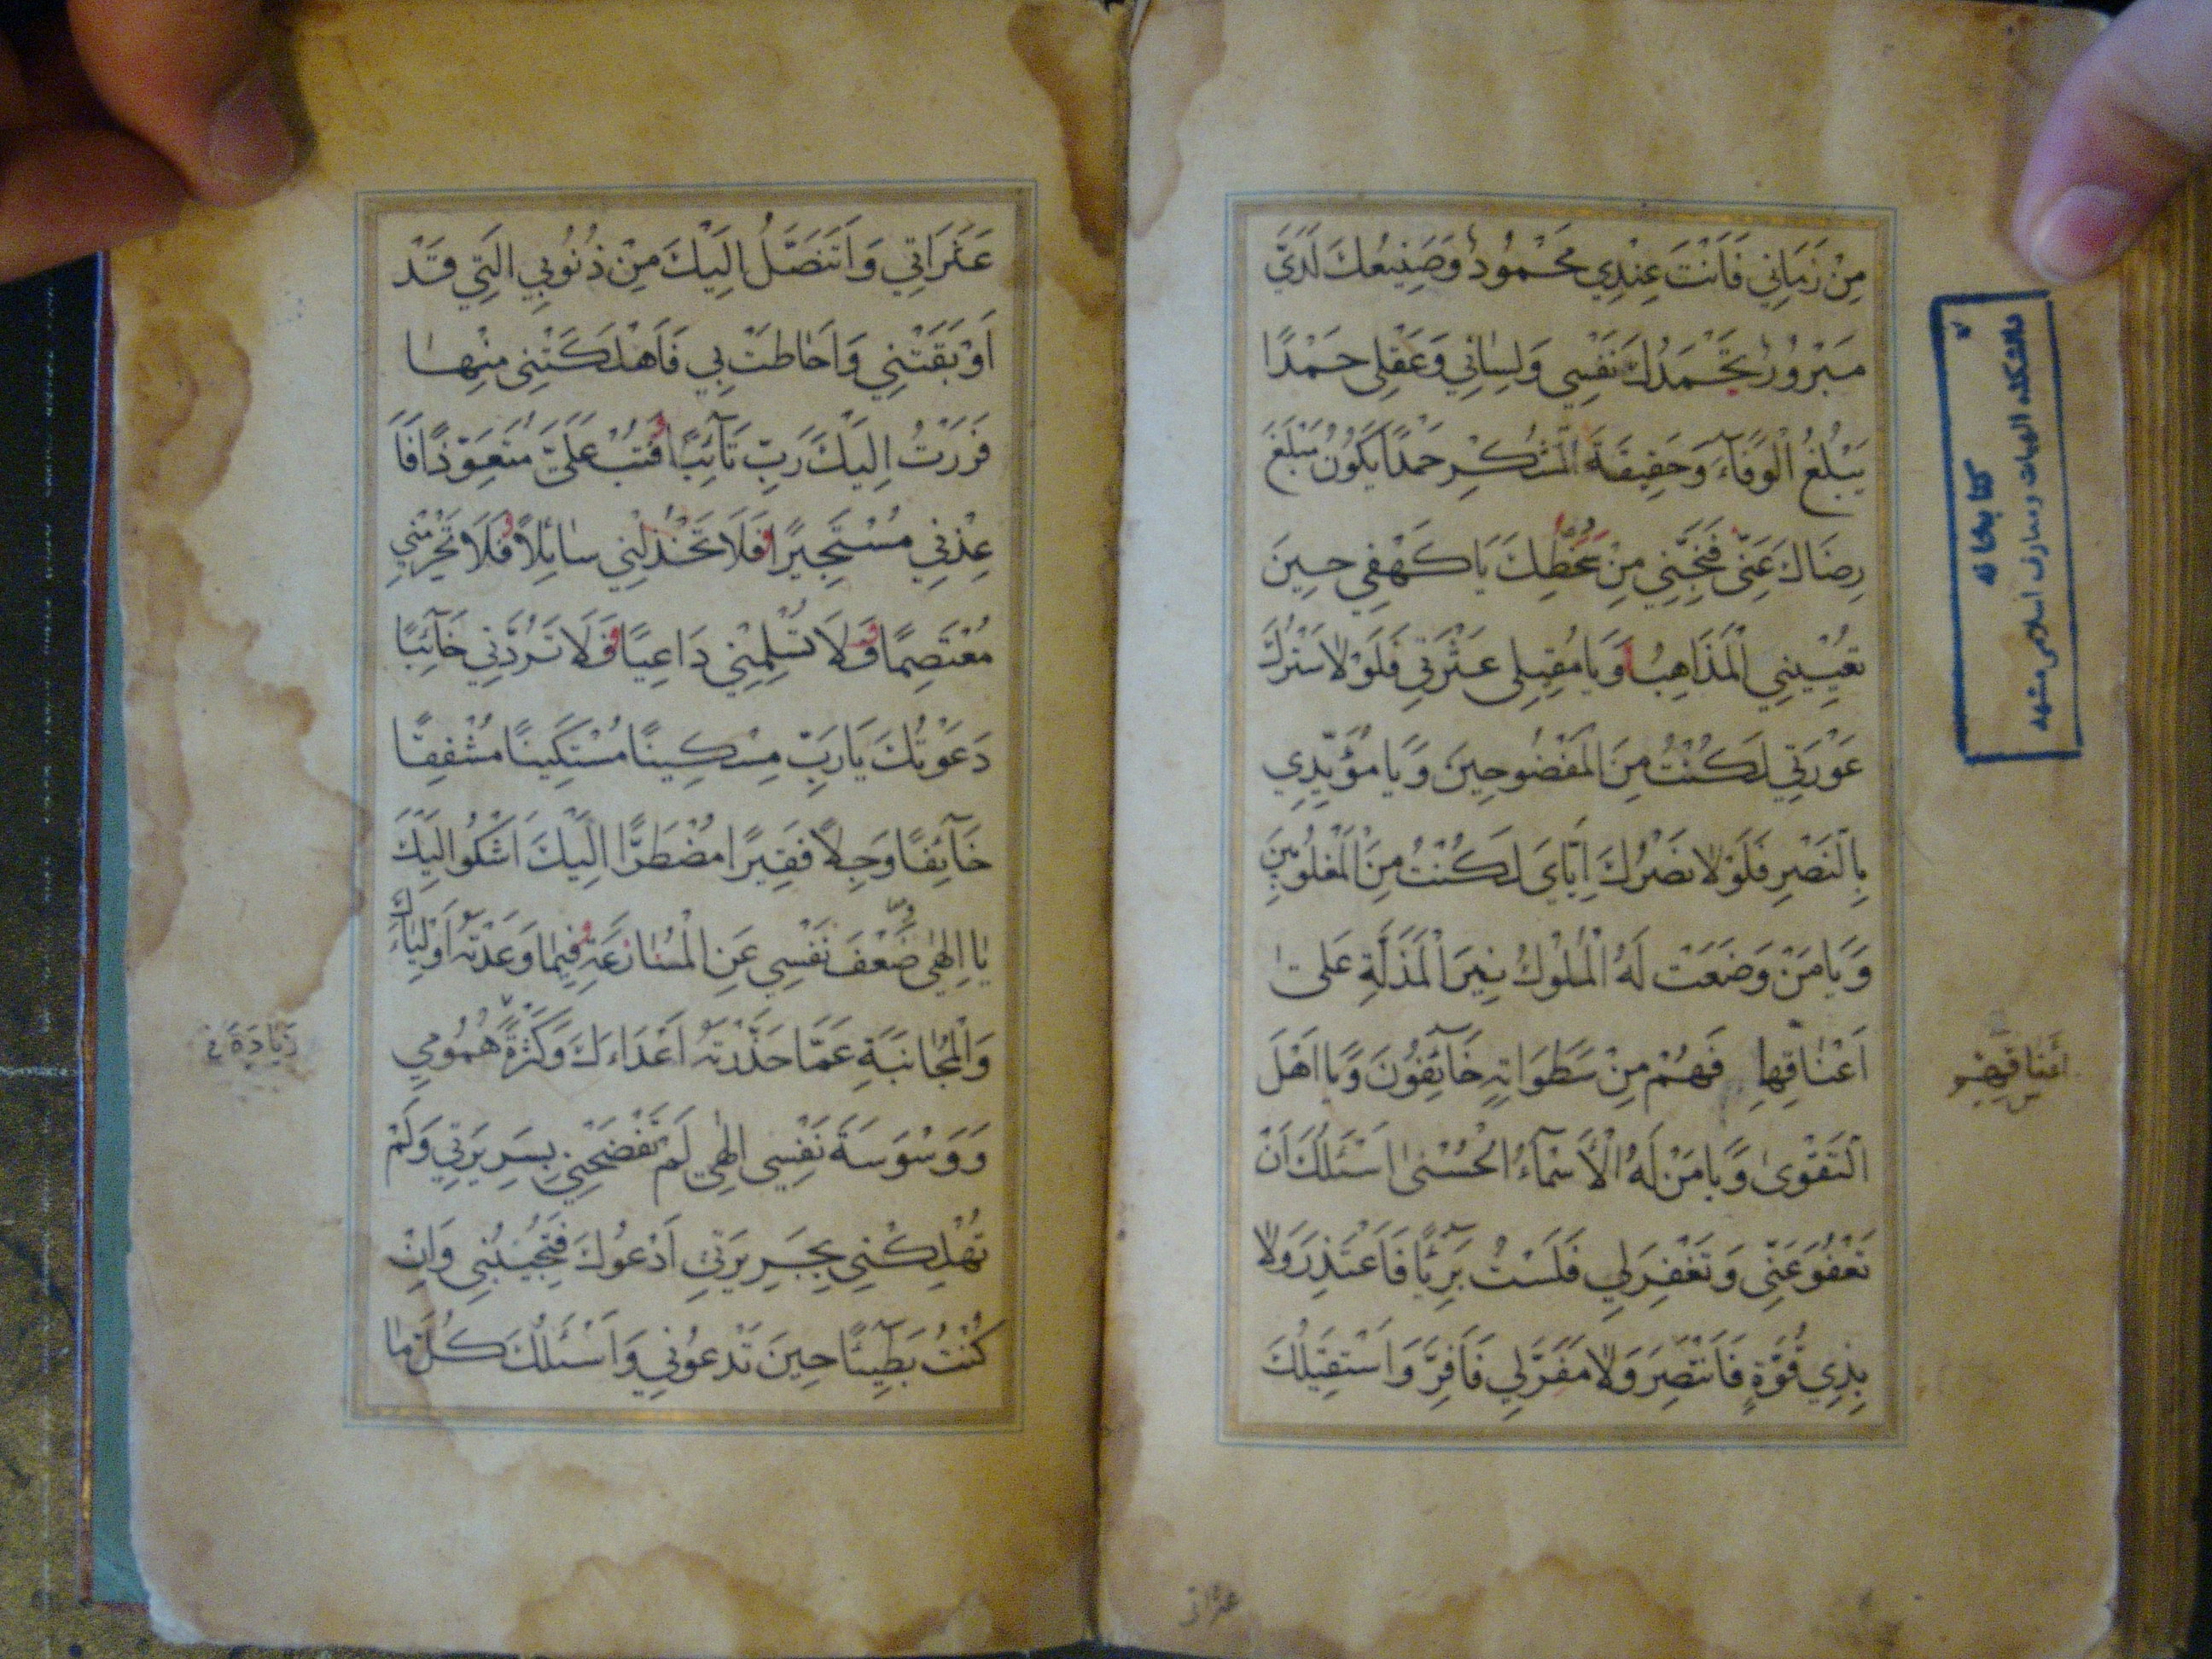 مِنْ زَمَانِي فَاَنْتَ عِنْدِي مَحْمُودٌ وَصَنِيعُكَ لَدَيَّ
مَبْرُورٌ تَحْمَدُكَ نَفْسِي وَلِسٰانِي وَعَقْلِى حَمْدًا
يَبْلُغُ الْوَفَآءَ وَحَقِيقَةَ الشُّكْرِ حَمْدًا يَكُونُ مَبْلَغَ
رِضَاكَ عَنِّى فَنَجِّنِي مِنْ سُخْطِكَ يَا كَهْفِي حِينَ
تُعْيِينِي الْمَذَاهِبُ وَيَا مُقِيلِى عَثْرَتِي فَلَوْلٰا سَتْرُكَ
عَوْرَتِي لَكُنْتُ مِنَ الْمَفْضُوحِينَ وَيَا مُؤَيِّدِي
بِالنَّصْرِ فَلَوْلٰا نَصْرُكَ اِيَّايَ لَكُنْتُ مِنَ الْمَغْلُوبِينَ
وَيَا مَنْ وَضَعَتْ لَهُ الْمُلُوكُ نِيرَ الْمَذَلَّةِ عَلىٰ
اَعْنٰاقِهٰا فَهُمْ مِنْ سَطَوَاتِهِ خَآئِفُونَ وَيَا اَهْلَ
التَّقْوىٰ وَيَا مَنْ لَهُ الْأَسْمَآءُ الْحُسْنىٰ اَسْئَلُكَ اَنْ
تَعْفُوَ عَنِّى وَتَغْفِرَلِي فَلَسْتُ بَرِئًا فَاَعْتَذِرَ وَلٰا
بِذِي قُوَّةٍ فَاَنْتَصِرَ وَلٰا مَفَرَّلِي فَاَفِرَّ وَاَسْتَقِيلُكَ
اعناقهم
س
عثراتی
کتابخانه
دانشکده الهیات و معارف اسلامی مشهد
عَثَرَاتِي وَاَتَنَصَّلُ اِلَيْكَ مِنْ ذُنُوبِي الَّتِي قَدْ
اَوْبَقَتْنِي وَاَحٰاطَتْ بِي فَاَهْلَكَتْنِى مِنْهٰا
فَرَرْتُ اِلَيْكَ رَبِّ تَآئِبًا فَتُبْ عَلَيَّ مُتَعَوِّذًا فَاَ
عِذْنِي مُسْتَجِيرًا فَلَا تَخْذُلْنِي سٰائِلًا فَلَا تَحْرِمْنِي
مُعْتَصِمًا فَلَا تُسْلِمْنِي دَاعِيًا فَلَا تَرُدَّنِي خَآئِبًا
دَعَوْتُكَ يَا رَبِّ مِسْكِينًا مُسْتَكِينًا مُشْفِقًا
خَآئِفًا وَجِلًا فَقِيرًا مُضْطَرًّا اِلَيْكَ اَشْكُوا اِلَيْكَ
يٰا اِلٰهِى ضَعْفَ نَفْسِي عَنِ الْمُسٰارَعَةِ فِيمٰا وَعَدْتَهُ اَوْلِيٰاءَكَ
وَالْمُجٰانَبَةِ عَمَّا حَذَّرْتَهُ اَعْدَاءَكَ وَكَثْرَةَ هُمُومِي
وَوَسْوَسَةَ نَفْسِى اِلٰهِي لَمْ تَفْضَحْنِي بِسَرِيرَتِي وَلَمْ
تُهْلِكْنِي بِجَرِيرَتِي اَدْعُوكَ فَتُجِيبُنِى وَاِنْ
كُنْتُ بَطِيئًا حِينَ تَدْعُونِي وَاَسْئَلُكَ كُلَّ مٰا